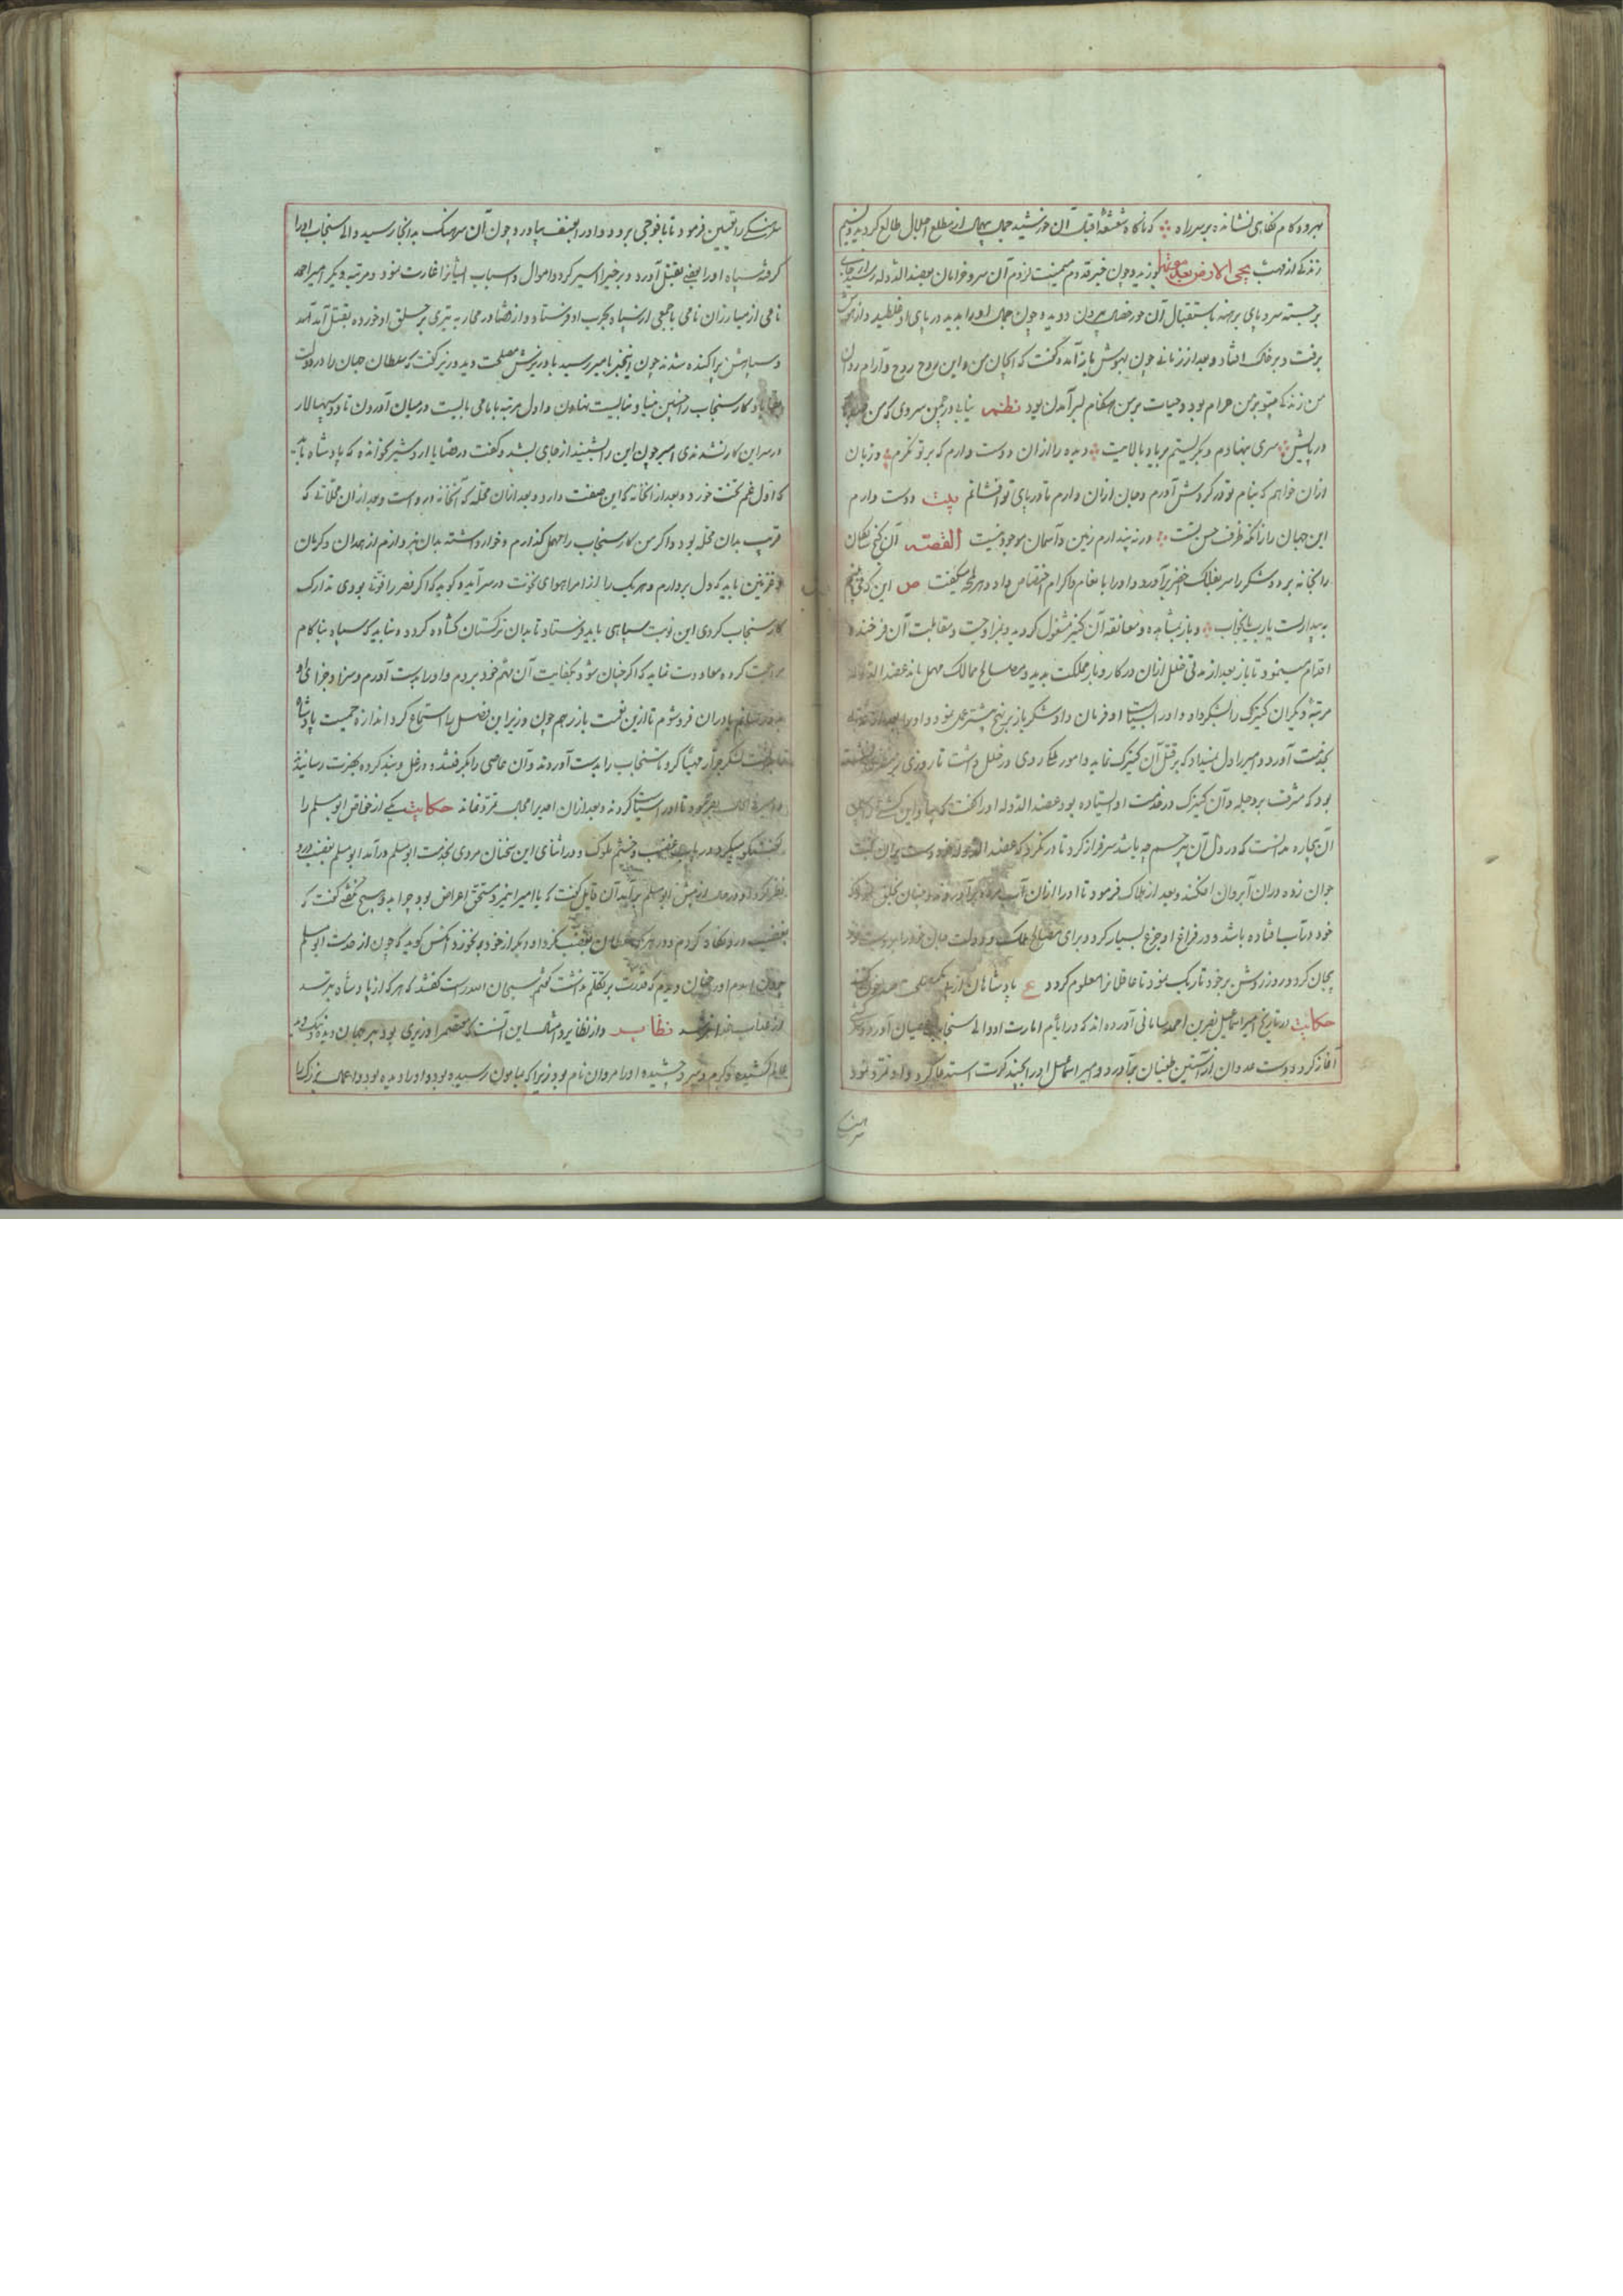 مهر و دکام نگاهی نشانده بر سر راه که ناگاه شعشعه اقبال آن خورشید جمال از مطلع اجلال طالع گردید و نسیم
زندگی از مهب یحیی الارض بعد موتها بوزید و چون خبر قدوم میمنت لزوم آن سرو خرامان بعضد الدوله رسید از جای
برجسته سر و پای برهنه باستقبال آن بیرون دویده چون جمال او را بدید در پای او غلطید و از هوش
برفت و بر خاک افتاد و بعد از زمانی چون بهوش باز آمد گفت که ای جان من و این روح روح و آرام روان
من زندگی بیتو بر من حرام بود و حیات بر من هنگام بسر آمدن بود نظم بیابی در چمن سروی که من
در پایش سری ننهادم و نگریستم بر یاد بالایت دیده را از آن دوست دارم که بر تو نگرم و زبان
از آن خواهم که بنام تو در گردش آورم و جان از آن دارم تا در پای تو افشانم بیت دوست دارم
این جهان را زانکه ظرف حسن تست ورنه پندارم زمین و آسمان موجود نیست القصه آن گنج شایگان
را بخانه برد و شکر را سر بفلک اخضر برآورد و او را بانعام و اکرام اختصاص داد و هر لحظه میگفت ص این که می بینم
به بیداریست یا رب یا بخواب و باز بمشاهده و معانقه آن کنیز مشغول گردید و بمزاوجت و مقابلت آن فرخنده
اقدام مینمود تا باز بعد از مدتی خلل از آن در کار و بار مملکت بدید و مصالح ممالک مهمل ماند عضد الدوله
مرتبه دیگر آن کنیزک را بشکر داد و او را لسیاست او فرمان داد شکر باز بر نهج پیشتر عمل نمود و او را بعد از
بخدمت آورد و امیر را دل نمیداد که بر قتل آن کنیزک نماید و امور ملک روی در خلل داشت تا روزی بر منظری نشسته
بود که مشرف بر دجله و آن کنیزک در خدمت او ایستاده بود عضد الدوله او را گفت که بیا و این کشتی را ببین
آن بیچاره ندانست که در دل آن بیرحم چه باشد سر فراز کرد تا در نگرد که عضد الدوله خود دست بران
جوان زده در آن آب روان افکند و بعد از هلاک فرمود تا او را از آن آب مرده برآوردند و چنان بخلق نمود که
خود در آب افتاده باشد و در فراغ او جزع بسیار کرد و برای مصالح ملک و دولت جان خود را بدست خود
بیجان کرد و روز روشن بر خود تاریک نمود تا عاقلانرا معلوم گردد ع پادشاهان از پی یک مصلحت صد خون کنند
حکایت در تاریخ امیر اسماعیل بن احمد سامانی آورده اند که در ایام امارت او والی سنجاب عصیان آورد و سرکشی
آغاز کرد و دست عدوان از آستین طغیان برآورد و امیر اسماعیل او را بچند کرت استدعا کرد و او تمرد نمود
سرهنگی
سرهنگی را تعیین فرمود تا با فوجی برود و او را بعنف بیاورد چون آن سرهنگ بدانجا رسید والی سنجاب او را
گرفته سپاه او را بعضی بقتل آورد و برخی را اسیر کرد و اموال و اسباب ایشانرا غارت نمود و مرتبه دیگر امیر احمد
نامی از مبارزان نامی با جمعی از سپاه بحرب او فرستاد و از قضا در محاربه تیری بر حلق او خورده بقتل آمد
و سپاهش پراکنده شدند چون اینخبر بامیر رسید با وزیرش مصلحت دید وزیر گفت که سلطان جهان را در دولت
باد کار سنجاب را چنین مینا و نبایست نهادن و اول مرتبه با نامی بایست در میان آوردن تا دو سپهسالار
در سر این کار نشدندی امیر چون این را بشنید از جای بشد و گفت در قضایا اردشیر خوانده که پادشاه باید
که اول غم تخت خورد و بعد از آن خانه که این صفت دارد و بعد از آن محله که آنخانه در وست و بعد از آن محلاتی که
قریب بدان محله بود و اگر من کار سنجاب را مهمل گذارم و خوار داشته بدان نپردازم از همدان و کرمان
و قزوین باید که دل بردارم و هر یک را از امرا هوای نخوت در سر آید و گوید که اگر نصر را قوت بودی تدارک
کار سنجاب کردی این نوبت سپاهی باید فرستاد تا بدان ترکستان گشاده گردد و نباید که سپاه ناکام
مراجعت کرده معاودت نماید که اگر چنان شود بکفایت آن مهم خود بروم و او را بدست آورم و سزا و جزای او
بدو رسانم یا در آن فرو شوم تا ازین نفت باز رهم چون وزیر این فصل را استماع کرد اندازه حمیت پادشاه
لشکر جرار مهیا کرد تا سنجاب را بدست آوردند و آن عاصی را بگرفتند و در غل و بند کرده بحضرت رسانید
تا او را سیاست کردند و بعد از آن احدی را مجال تمرد نماند حکایت یکی از خواص ابو مسلم را
گفتگو میکرد در باب غضب و خشم ملوک و در اثنای این سخنان مردی بخدمت ابو مسلم درآمد ابو مسلم بغضب درو
نظر کرد او در حال از پیش ابو مسلم برآید آن قایل گفت که یا امیر اینمرد مستحق اعراض بود چرا بدو هیچ نگفتی گفت که
بغضب درو نگاه کردم و در هر که سلطان بغضب نگرد او دیگر از خود برنخورد آنکس گوید که چون از خدمت ابو مسلم
بیرون آمدم او را چنان دیدم که قدرت بر تکلم نداشت گفتم سبحان الله راست گفتند که هر که از پادشاه بترسد
از عذاب خدا ترسد نظایر و از نظایر و امثال این آنست که معتصم را وزیری بود پیر جهان دیده و نیک و بد
عالم کشیده و گرم و سرد چشیده او را مروان نام بود زیرا که بمامون رسیده بود و او را دیده بود و اعمال بزرگ را